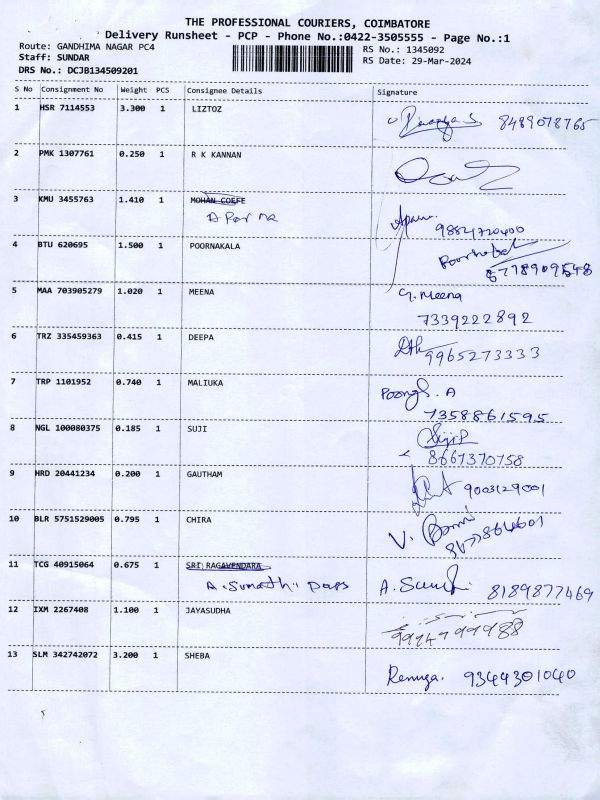 THE PROFESSIONAL COURIERS, COIMBATORE
Delivery Runsheet - PCP - Phone No.:0422-3505555 - Page No.:1
Route: GANDHIMA NAGAR PC4
RS No.: 1345092
Staff: SUNDAR
RS Date: 29-Mar-2024
DRS No.: DCJB134509201
S No Consignment No Weight PCS Consignee Details Signature
1 HSR 7114553 3.300 1 LIZTOZ
8489078765
2 PMK 1307761 0.250 1 R K KANNAN
3 KMU 3455763 1.410 1 MOHAN COEFE
Aparna
9884720400
4 BTU 620695 1.500 1 POORNAKALA
8778909548
5 MAA 703905279 1.020 1 MEENA G. Meena
7339222892
6 TRZ 335459363 0.415 1 DEEPA
9965273333
7 TRP 1101952 0.740 1 MALIUKA
7358861595
8 NGL 100080375 0.185 1 SUJI
8667370758
9 HRD 20441234 0.200 1 GAUTHAM 9003129001
10 BLR 5751529005 0.795 1 CHIRA
11 TCG 40915064 0.675 1 SRI RAGAVENDARA
A. Sumathi
8189877469
12 IXM 2267408 1.100 1 JAYASUDHA
13 SLM 342742072 3.200 1 SHEBA
Renuga. 9344301040